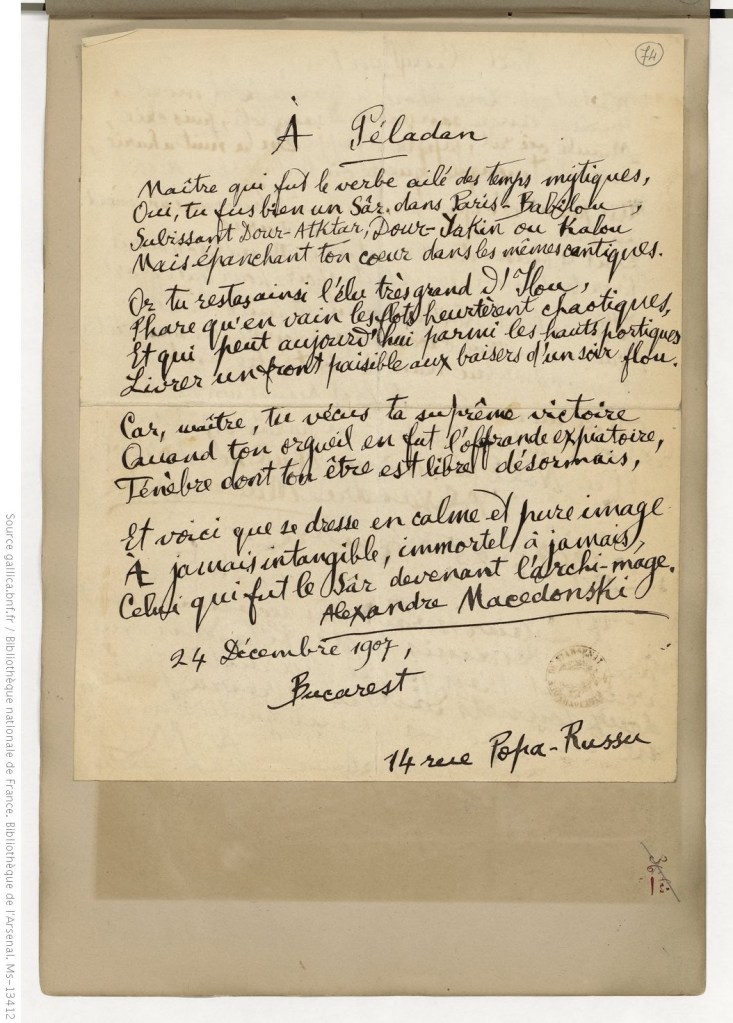 74
À Péladan
Maître qui fut le verbe ailé des temps mytiques,
Oui, tu fus bien un Sâr dans Paris-Babilou,
Subissant Dour-Atktar, Dour-Yakin ou Kalou
Mais épanchant ton coeur dans les mêmes cantiques.
Or tu restas ainsi l'élu très grand d'Ilou,
Phare qu'en vain les flots heurtèrent chaotiques,
Et qui peut aujourd'hui parmi les hauts portiques
Livrer un front paisible aux baisers d'un soir flou.
Car, maître, tu vécus ta suprême victoire
Quand ton orgueil en fut l'offrande expiatoire,
Ténèbre dont ton être est libre désormais,
Et voici que se dresse en calme et pure image
À jamais intangible, immortel à jamais,
Celui qui fut le Sâr devenant l'archi-mage.
Alexandre Macedonski
24 Décembre 1907,
Bucarest
14 rue Popa-Russu
Source gallica.bnf.fr / Bibliothèque nationale de France. Bibliothèque de l'Arsenal. Ms-13412